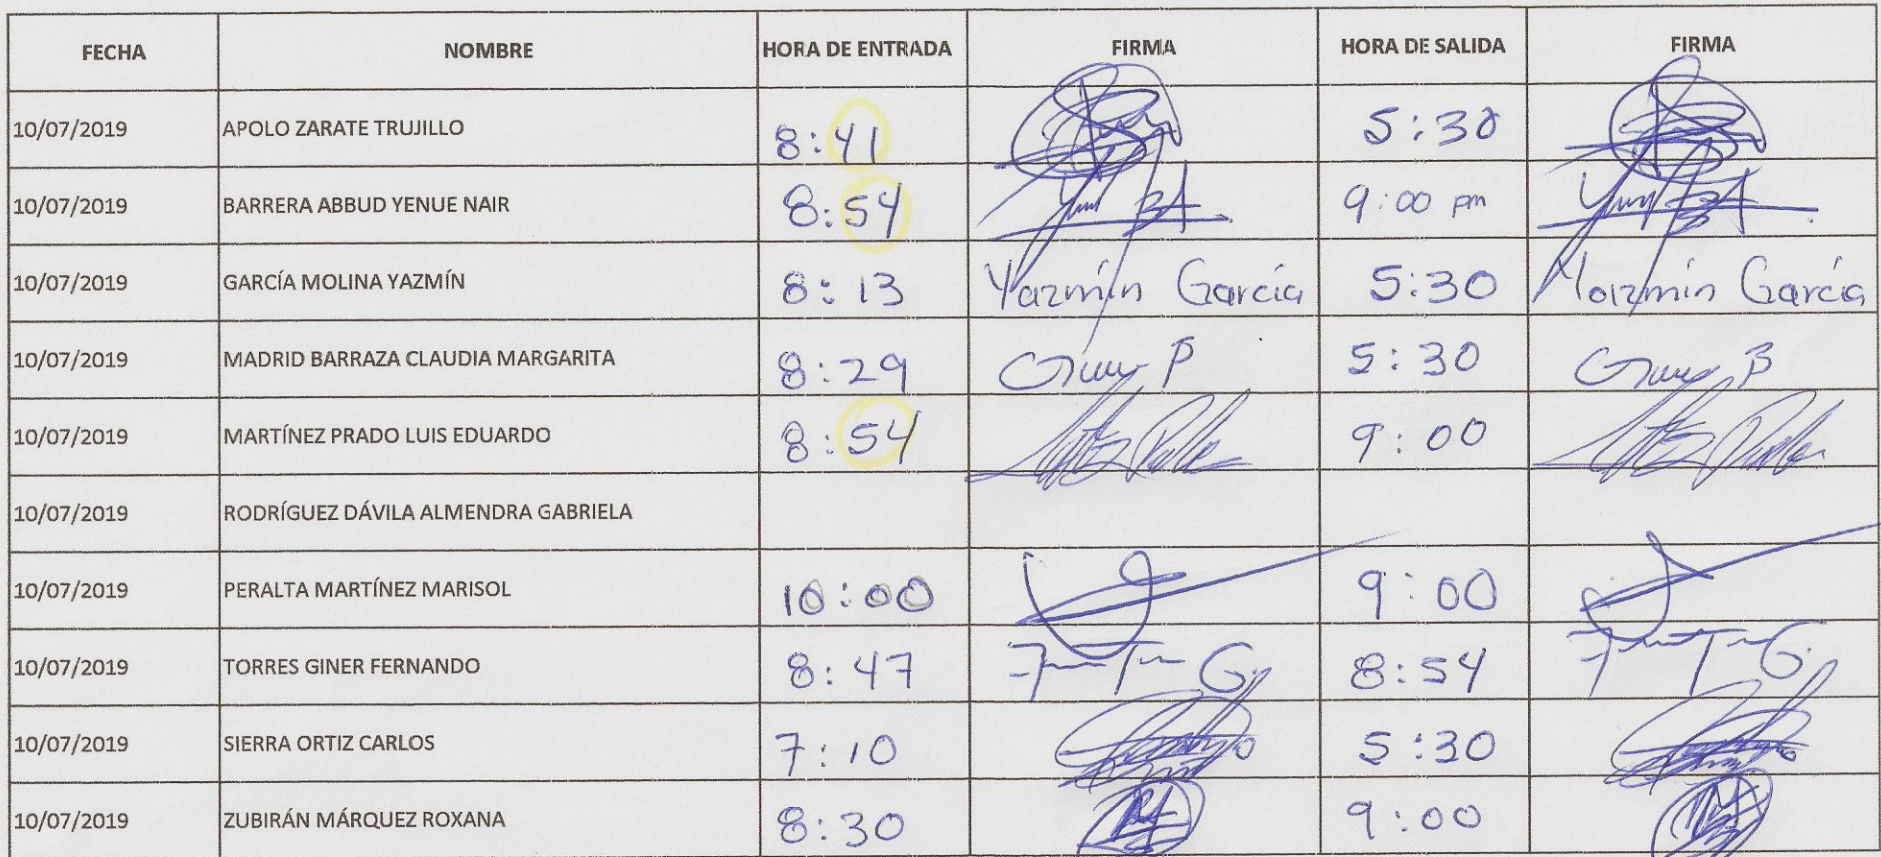 FECHA NOMBRE HORA DE ENTRADA FIRMA HORA DE SALIDA FIRMA
10/07/2019 APOLO ZARATE TRUJILLO 8:41 5:30
10/07/2019 BARRERA ABBUD YENUE NAIR 8:54 9:00 pm
10/07/2019 GARCÍA MOLINA YAZMÍN 8:13 Yazmín García 5:30 Yazmín García
10/07/2019 MADRID BARRAZA CLAUDIA MARGARITA 8:29 5:30
10/07/2019 MARTÍNEZ PRADO LUIS EDUARDO 8:54 9:00
10/07/2019 RODRÍGUEZ DÁVILA ALMENDRA GABRIELA
10/07/2019 PERALTA MARTÍNEZ MARISOL 10:00 9:00
10/07/2019 TORRES GINER FERNANDO 8:47 8:54
10/07/2019 SIERRA ORTIZ CARLOS 7:10 5:30
10/07/2019 ZUBIRÁN MÁRQUEZ ROXANA 8:30 9:00